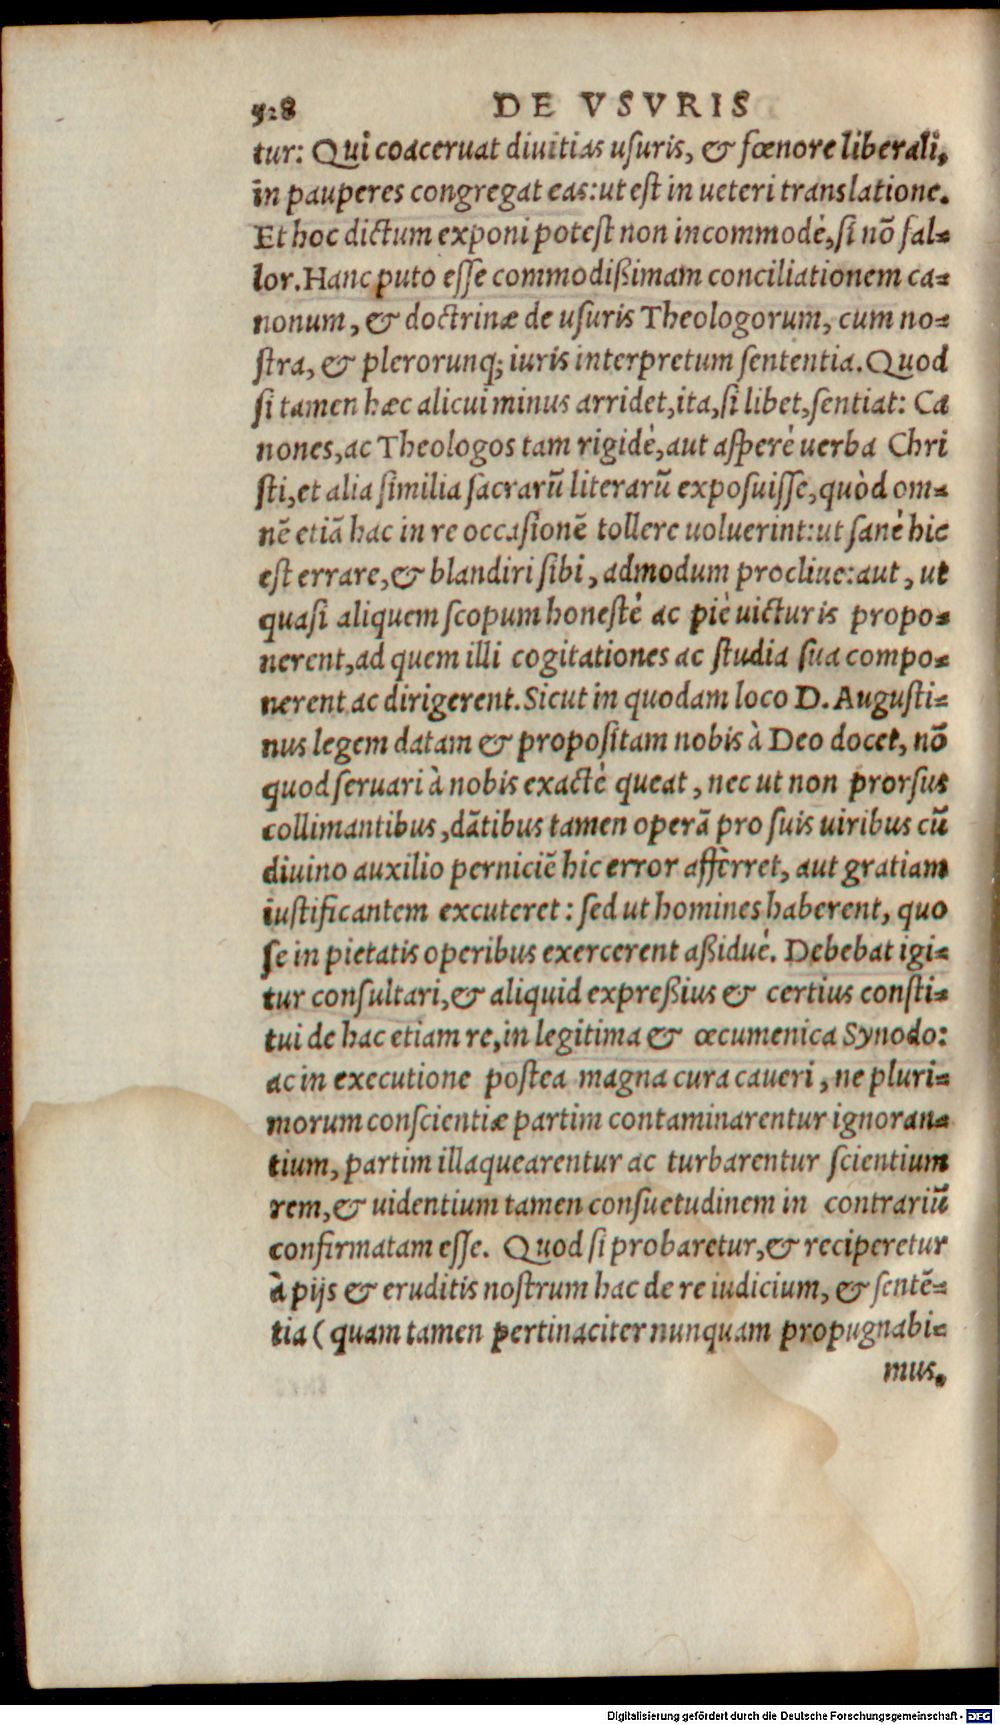 528 DE VSVRIS
tur: Qui coaceruat diuitias usuris, & fœnore liberali,
in pauperes congregat eas: ut est in ueteri translatione.
Et hoc dictum exponi potest non incommodè, si nõ fal-
lor. Hanc puto esse commodißimam conciliationem ca-
nonum, & doctrinæ de usuris Theologorum, cum no-
stra, & plerorunq; iuris interpretum sententia. Quod
si tamen hæc alicui minus arridet, ita, si libet, sentiat: Ca
nones, ac Theologos tam rigidè, aut asperè uerba Chri
sti, et alia similia sacrarũ literarũ exposuisse, quòd om-
nẽ etiã hac in re occasionẽ tollere uoluerint: ut sanè hic
est errare, & blandiri sibi, admodum procliue: aut, ut
quasi aliquem scopum honestè ac piè uicturis propo-
nerent, ad quem illi cogitationes ac studia sua compo-
nerent ac dirigerent. Sicut in quodam loco D. Augusti-
nus legem datam & propositam nobis à Deo docet, nõ
quod seruari à nobis exactè queat, nec ut non prorsus
collimantibus, dãtibus tamen operã pro suis uiribus cũ
diuino auxilio perniciẽ hic error afferret, aut gratiam
iustificantem excuteret: sed ut homines haberent, quo
se in pietatis operibus exercerent aßiduè. Debebat igi-
tur consultari, & aliquid expreßius & certius consti-
tui de hac etiam re, in legitima & œcumenica Synodo:
ac in executione postea magna cura caueri, ne pluri-
morum conscientiæ partim contaminarentur ignoran-
tium, partim illaquearentur ac turbarentur scientium
rem, & uidentium tamen consuetudinem in contrariũ
confirmatam esse. Quod si probaretur, & reciperetur
à pijs & eruditis nostrum hac de re iudicium, & sentẽ-
tia (quam tamen pertinaciter nunquam propugnabi-
mus,
Digitalisierung gefördert durch die Deutsche Forschungsgemeinschaft - DFG